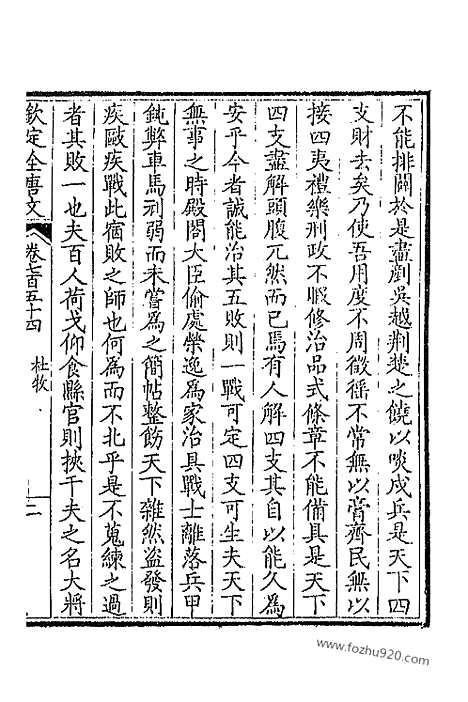 不能排闢於是盡剷吳越荆楚之饒以啖戍兵是天下四
支財去矣乃使吾用度不周徵徭不常無以膏齊民無以
接四夷禮樂刑政不暇修治品式條章不能備具是天下
四支盡解頭腹兀然而已焉有人解四支其自以能久為
安乎今者誠能治其五敗則一戰可定四支可生夫天下
無事之時殿閣大臣偷處榮逸為家治具戰士離落兵甲
鈍弊車馬刓弱而未嘗為之簡帖整飭天下雜然盜發則
疾歐疾戰此宿敗之師也何為而不北乎是不蒐練之過
者其敗一也夫百人荷戈仰食縣官則挾千夫之名大將
欽定全唐文 卷七百五十四 杜牧 二
www.fozhu920.com